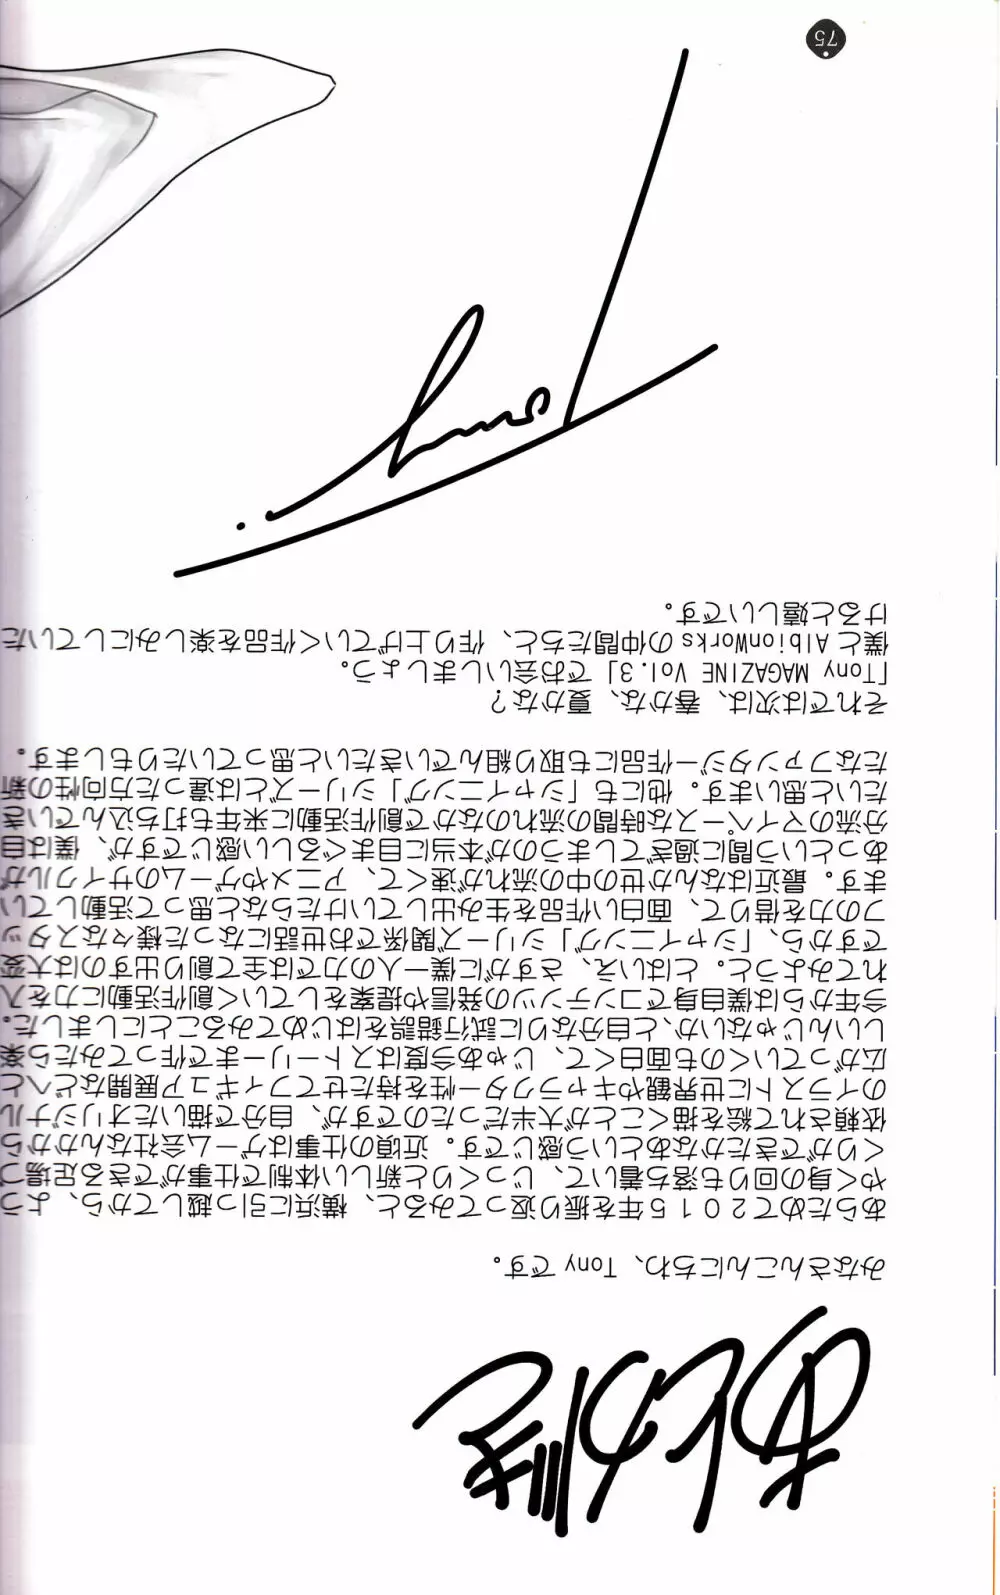 あとがき
みなさんこんにちわ、Tony です。
あらためて２０１５年を振り返ってみると、横浜に引っ越してから、よう
やく身の回りも落ち着いて、じっくりと新しい体制で仕事ができる足場つ
くりができたかなあという感じです。近頃の仕事はゲーム会社なんかから
依頼されて絵を描くことが大半だったのですが、自分で描いたオリジナル
のイラストに世界観やキャラクター性を持たせてフィギュア展開などへと
広がっていくのも面白くて、じゃあ今度はストーリーまで作ってみたら楽
しいんじゃないか、と自分なりに試行錯誤をはじめてみることにしました。
今年からは僕自身でコンテンツの発信や提案をしていく創作活動に力を入
れてみようと。とはいえ、さすがに僕一人の力では全て創り出すのは大変
ですから、「シャイニング」シリーズ関係でお世話になった様々なスタッ
フの力を借りて、面白い作品を生み出していけたらなと思って活動してい
ます。最近はなんか世の中の流れが速くて、アニメやゲームのサイクルが
あっという間に過ぎてしまうのが本当に目まぐるしい感じですが、僕は自
分流のマイペースな時間の流れのなかで創作活動に来年も打ち込んでいき
たいと思います。他にも「シャイニング」シリーズとは違った方向性の新
たなファンタジー作品にも取り組んでいきたいと思っていたりもします。
それでは次は、春かな、夏かな？
「Tony MAGAZINE Vol.3」でお会いしましょう。
僕と AlbionWorks の仲間たちと、作り上げていく作品を楽しみにしていた
けると嬉しいです。
Tony
75